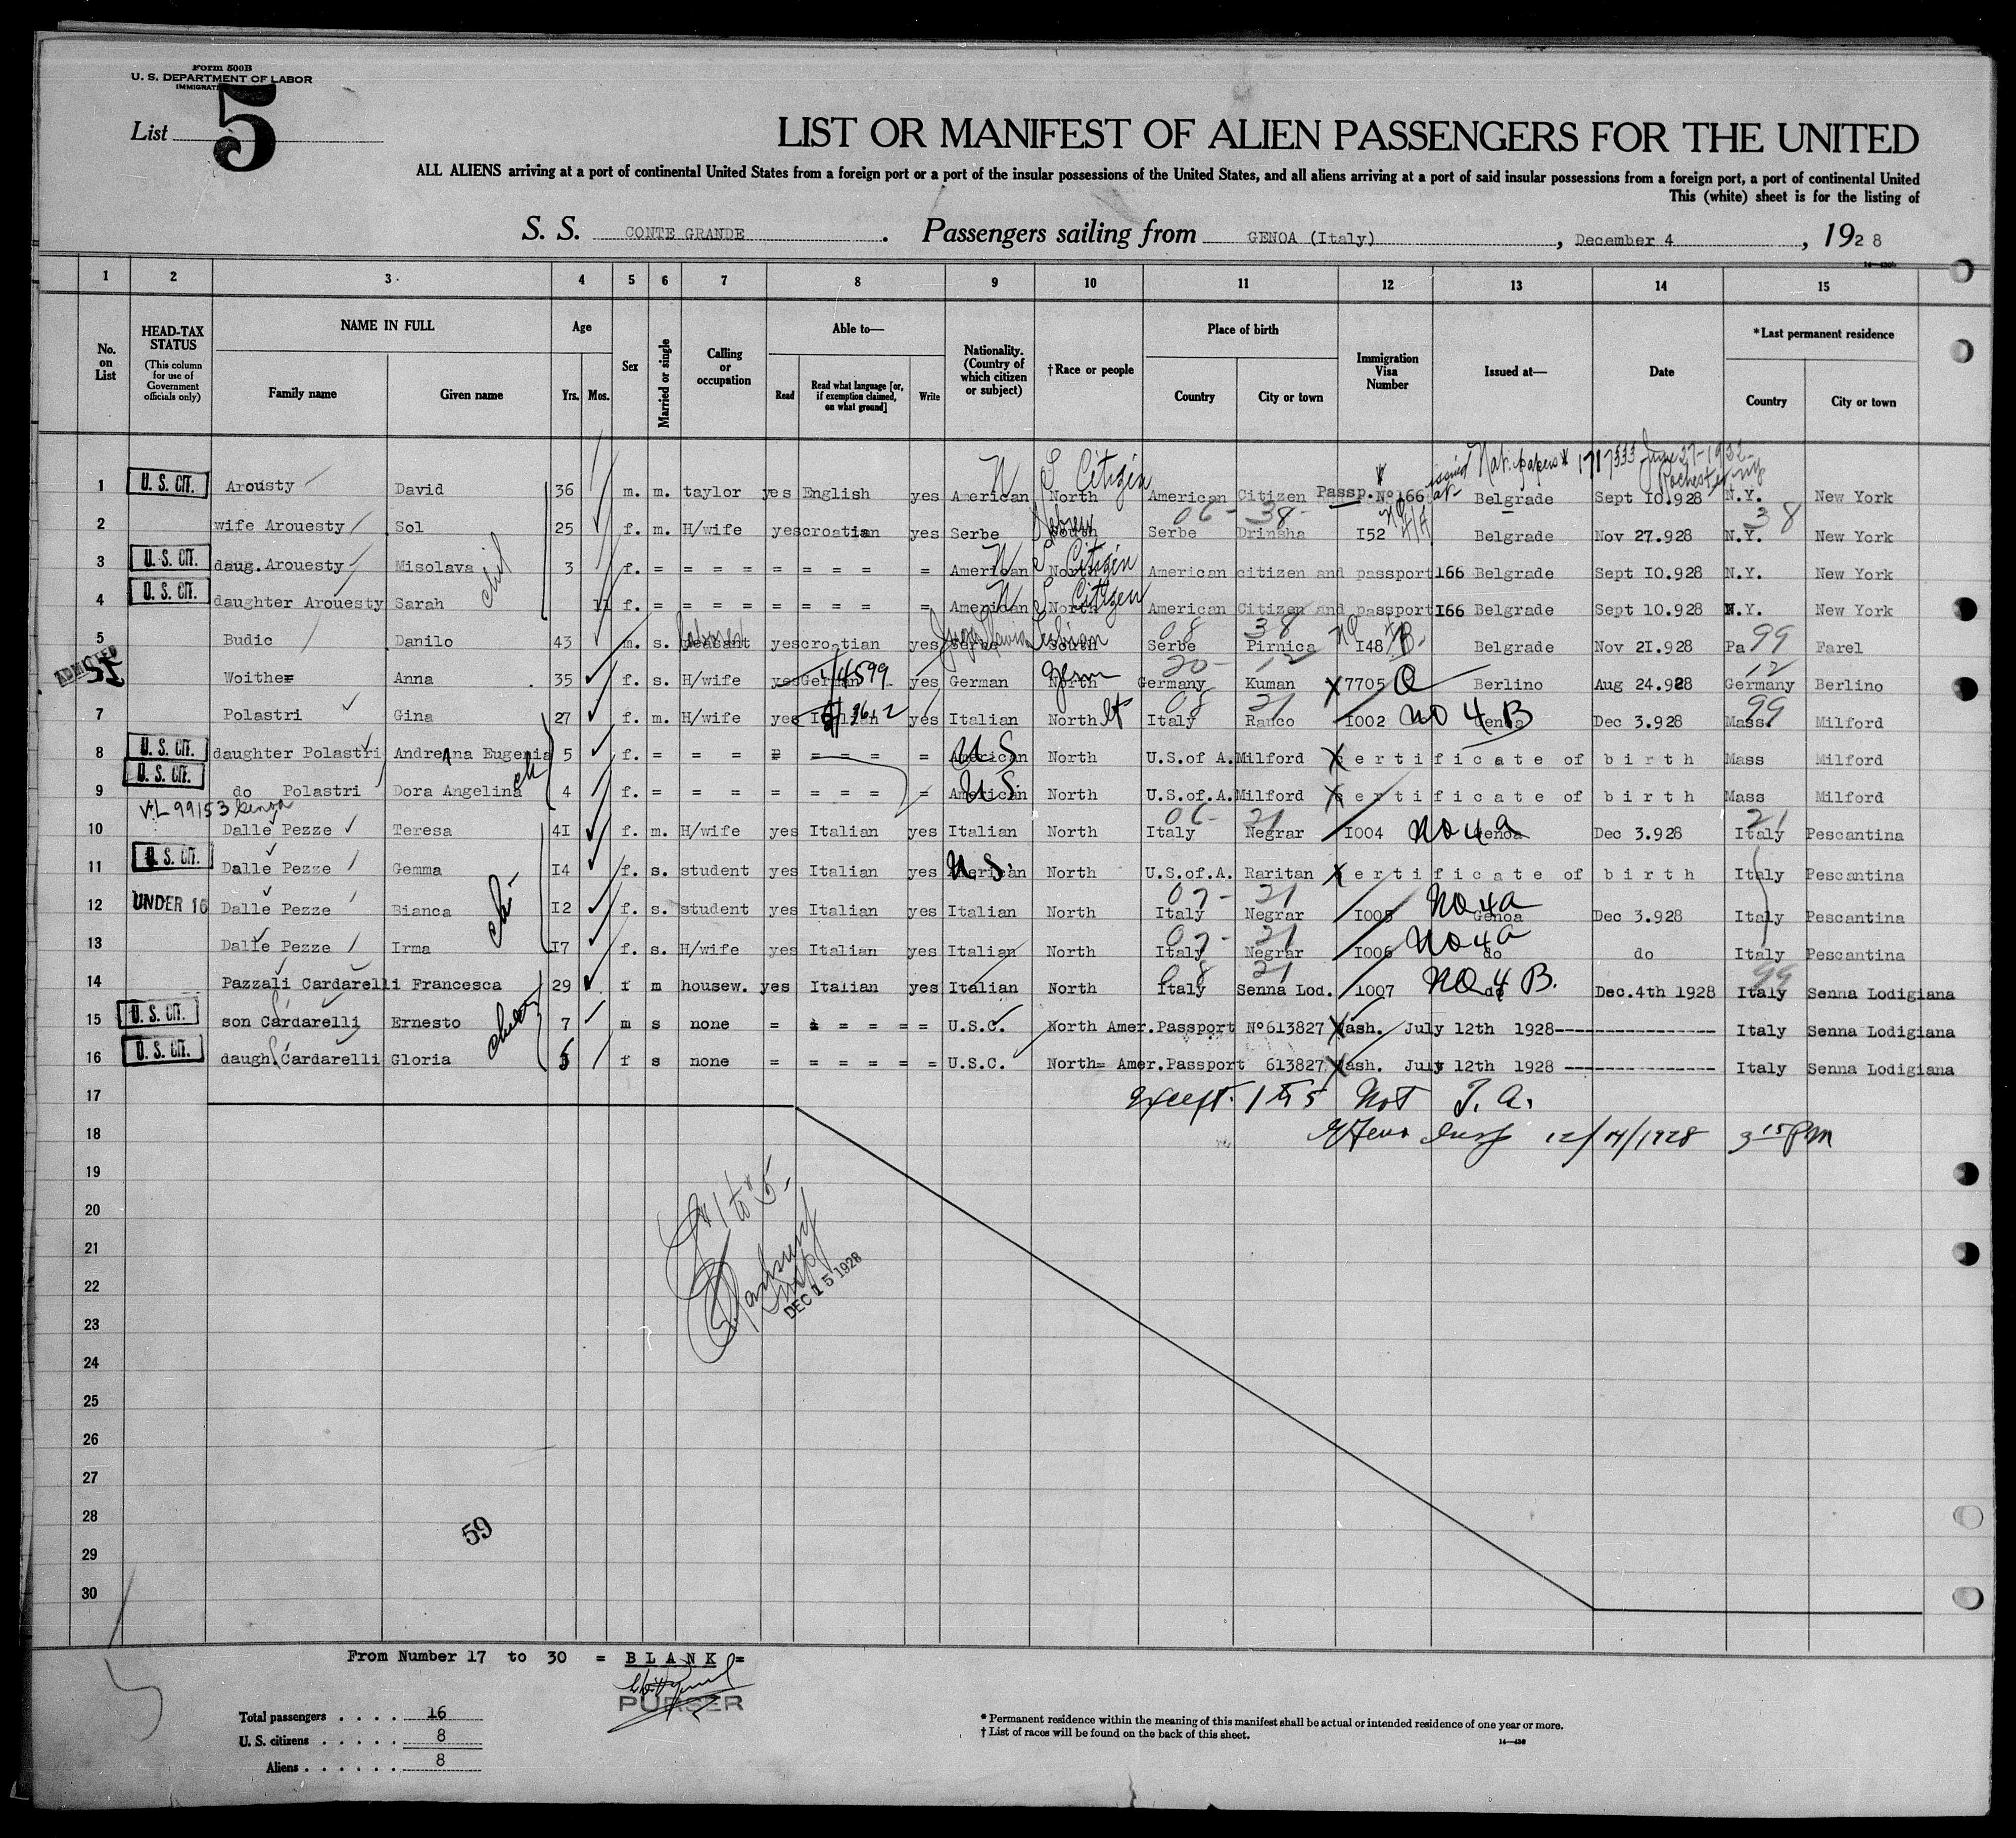 Form 500B
U. S. DEPARTMENT OF LABOR
List 5
LIST OR MANIFEST OF ALIEN PASSENGERS FOR THE UNITED
ALL ALIENS arriving at a port of continental United States from a foreign port or a port of the insular possessions of the United States, and all aliens arriving at a port of said insular possessions from a foreign port, a port of continental United
This (white) sheet is for the listing of
S. S. CONTE GRANDE. Passengers sailing from GENOA (Italy), December 4, 1928
1 2 3 4 5 6 7 8 9 10 11 12 13 14 15
No. on List
HEAD-TAX STATUS (This column for use of Government officials only)
NAME IN FULL
Family name
Given name
Age
Yrs. Mos.
Sex
Married or single
Calling or occupation
Able to—
Read
Read what language [or, if exemption claimed, on what ground]
Write
Nationality. (Country of which citizen or subject)
† Race or people
Place of birth
Country
City or town
Immigration Visa Number
Issued at—
Date
*Last permanent residence
Country
City or town
issued Nat. papers # 1717533 June 27-1932-
Rochester NY
1 U. S. CIT. Arousty David 36 m. m. taylor yes English yes American North U S Citizen American Citizen Passp. No 166 at Belgrade Sept 10.928 N.Y. New York
06 - 38 - 38
2 wife Arouesty Sol 25 f. m. H/wife yes croatian yes Serbe South Hebrew Serbe Drinsha I52 Belgrade Nov 27.928 N.Y. New York
3 U. S. CIT. daug. Arouesty Misolava 3 f. = = = = = = = = American North U S Citizen American citizen and passport 166 Belgrade Sept I0.928 N.Y. New York
4 U. S. CIT. daughter Arouesty Sarah 11 f. = = = = = = = = American North U S Citizen American Citizen and passport I66 Belgrade Sept 10.928 N.Y. New York
08 38 99
5 Budic Danilo 43 m. s. peasant yes croatian yes Serbe South Serbe Pirnica I48 Belgrade Nov 2I.928 Pa Farel
ADMITTED
20 - 12 12
Woithe Anna 35 f. s. H/wife yes German 4/4599 yes German North Germ Germany Kuman 7705 Q Berlino Aug 24.928 Germany Berlino
08 21 99
7 Polastri Gina 27 f. m. H/wife yes Italian yes Italian North It Italy Rauco I002 NO 4 B Genoa Dec 3.928 Mass Milford
8 U. S. CIT. daughter Polastri Andreana Eugenia 5 f. = = = = = = = = American U S North U.S.of A. Milford Certificate of birth Mass Milford
9 U. S. CIT. do Polastri Dora Angelina 4 f. = = = = = = = = American U S North U.S.of.A. Milford Certificate of birth Mass Milford
V.L 99153 Genoa
06 - 21 21
10 Dalle Pezze Teresa 4I f. m. H/wife yes Italian yes Italian North Italy Negrar I004 NO 4 a Genoa Dec 3.928 Italy Pescantina
11 U. S. CIT. Dalle Pezze Gemma I4 f. s. student yes Italian yes American U S. North U.S.of.A. Raritan Certificate of birth Italy Pescantina
07 - 21
12 UNDER 16 Dalle Pezze Bianca I2 f. s. student yes Italian yes Italian North Italy Negrar I005 NO 4 a Genoa Dec 3.928 Italy Pescantina
07 - 21
13 Dalle Pezze Irma I7 f. s. H/wife yes Italian yes Italian North Italy Negrar I006 NO 4 a do do Italy Pescantina
08 21 99
14 Pazzali Cardarelli Francesca 29 f m housew. yes Italian yes Italian North Italy Senna Lod. 1007 NO 4 B. do Dec.4th 1928 Italy Senna Lodigiana
15 U. S. CIT. son Cardarelli Ernesto 7 m s none = = = = = = U.S.C. North Amer.Passport No613827 Wash. July 12th 1928 Italy Senna Lodigiana
16 U. S. CIT. daugh. Cardarelli Gloria f s none = = = = = = U.S.C. North= Amer.Passport 613827 Wash. July 12th 1928 Italy Senna Lodigiana
17 Except. 1 to 5 Not T. A.
18 12/14/1928 3 15 PM
19
20
21
22
23
24
25
26
27
28
29
30
# 1 to 5 -
DEC 15 1928
59
From Number 17 to 30 = BLANK =
PURSER
Total passengers . . . . 16
U. S. citizens . . . . . 8
Aliens . . . . . . 8
* Permanent residence within the meaning of this manifest shall be actual or intended residence of one year or more.
† List of races will be found on the back of this sheet.
14—430